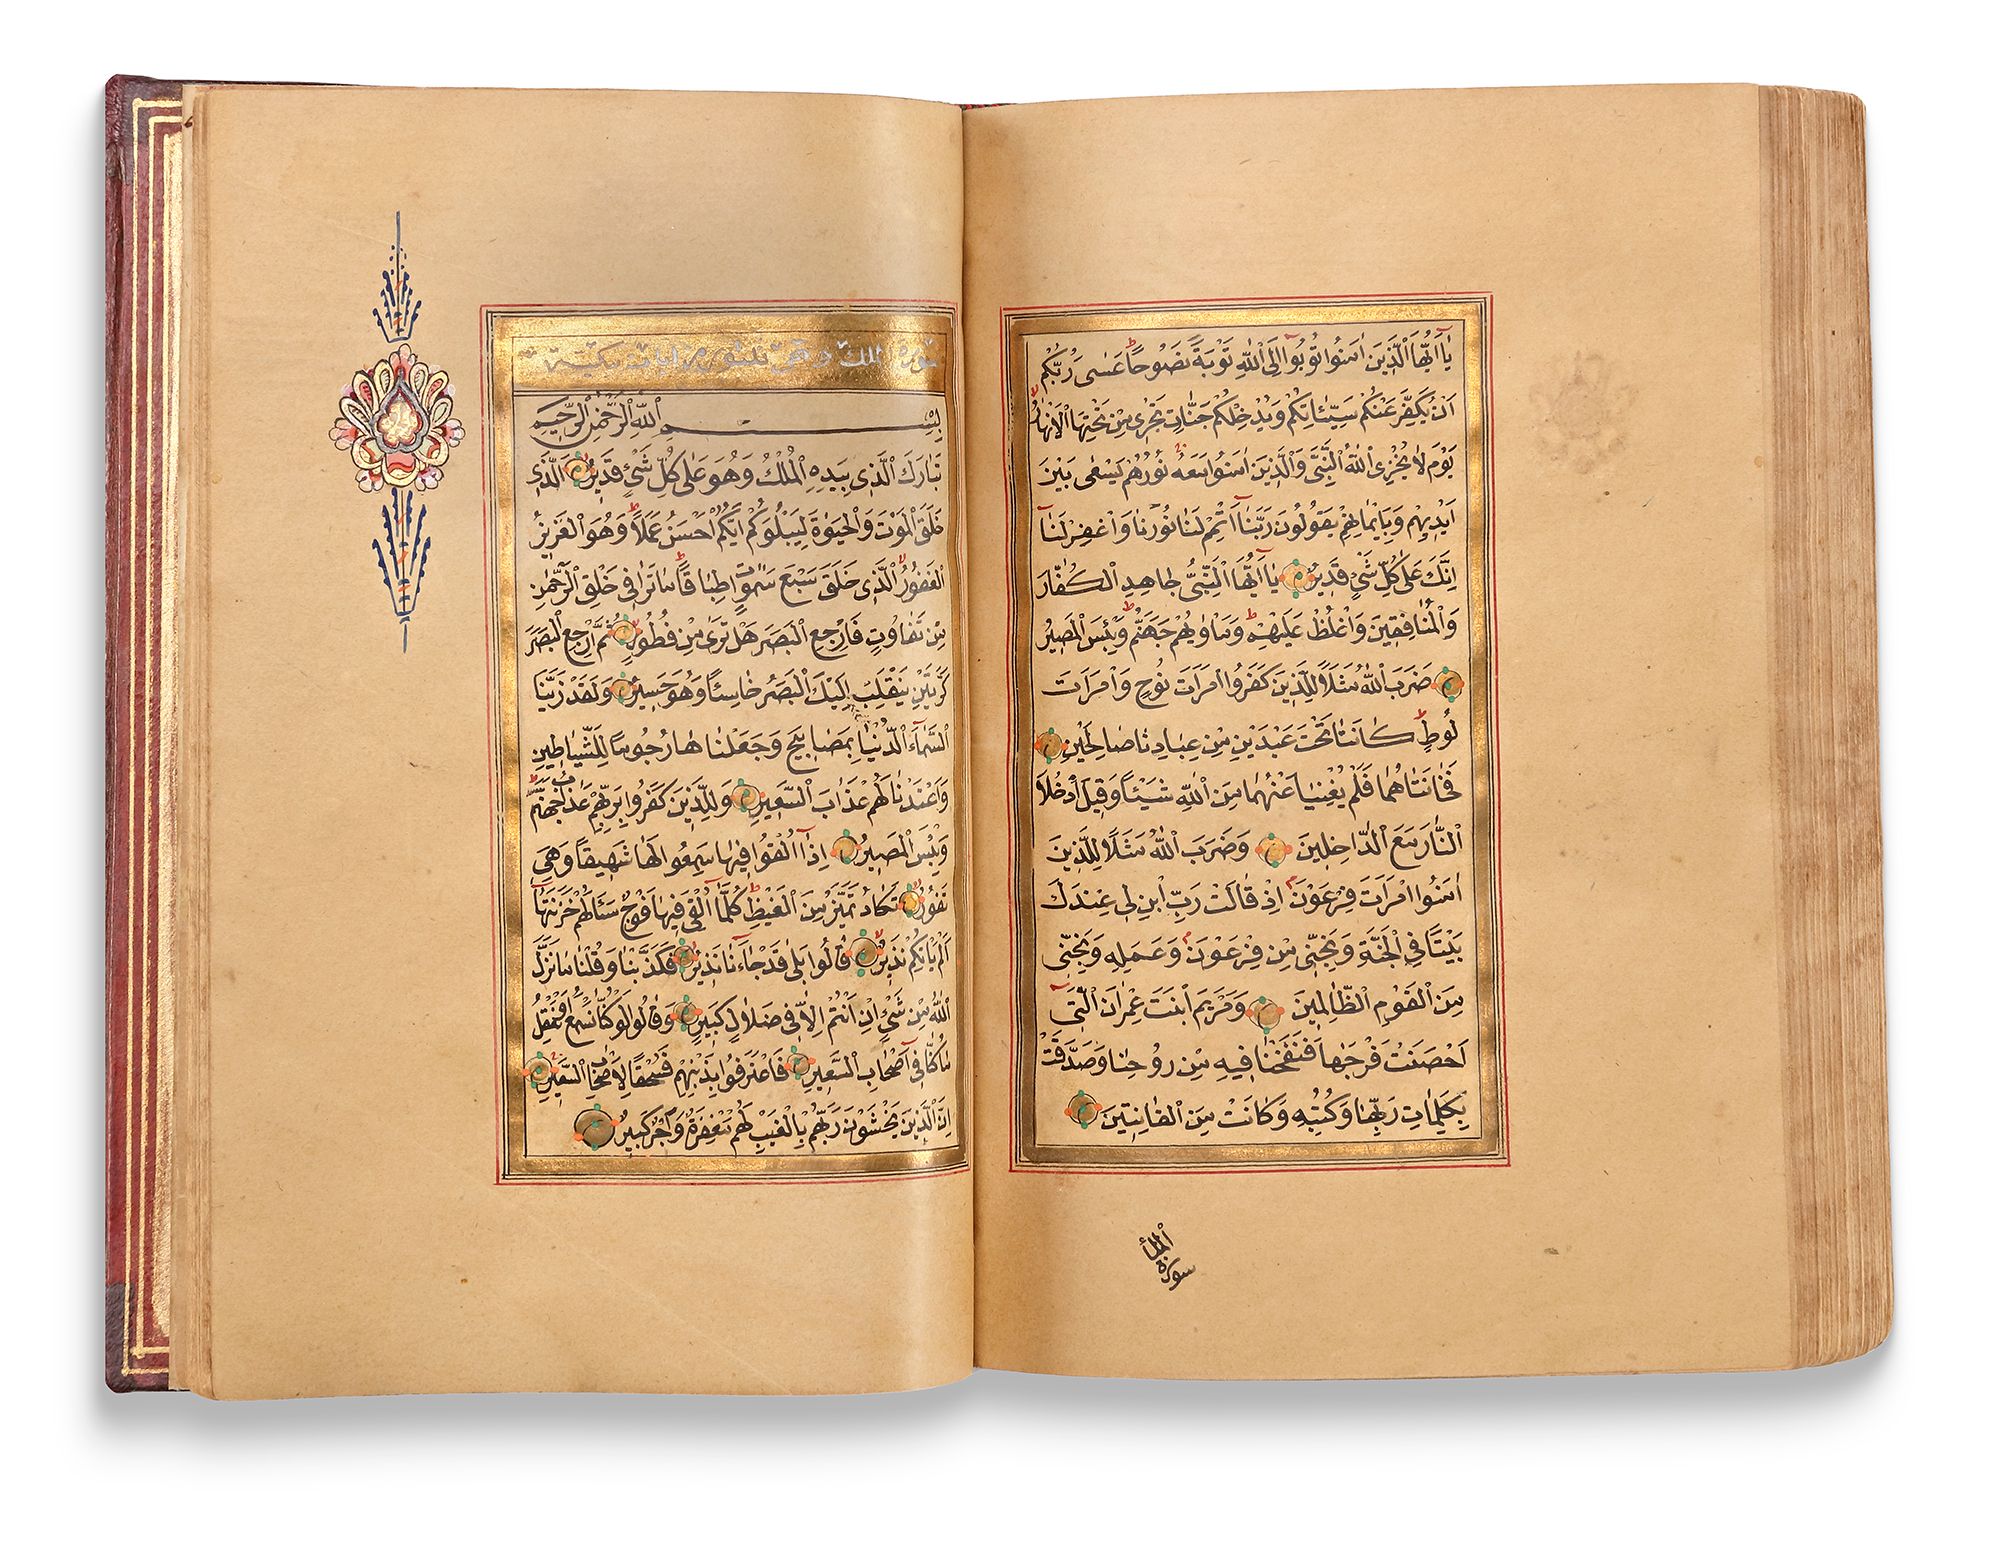 يَا أَيُّهَا الَّذِينَ اٰمَنُوا تُوبُوا اِلَى اللّٰهِ تَوْبَةً نَصُوحًا عَسٰى رَبُّكُمْ
اَنْ يُكَفِّرَ عَنْكُمْ سَيِّئَاتِكُمْ وَيُدْخِلَكُمْ جَنَّاتٍ تَجْرِى مِنْ تَحْتِهَا الْاَنْهَارُ
يَوْمَ لَا يُخْزِى اللّٰهُ النَّبِىَّ وَالَّذِينَ اٰمَنُوا مَعَهُ نُورُهُمْ يَسْعٰى بَيْنَ
اَيْدِيهِمْ وَبِاَيْمَانِهِمْ يَقُولُونَ رَبَّنَا اَتْمِمْ لَنَا نُورَنَا وَاغْفِرْ لَنَا
اِنَّكَ عَلٰى كُلِّ شَىْءٍ قَدِيرٌ يَا اَيُّهَا النَّبِىُّ جَاهِدِ الْكُفَّارَ
وَالْمُنَافِقِينَ وَاغْلُظْ عَلَيْهِمْ وَمَأْوٰيهُمْ جَهَنَّمُ وَبِئْسَ الْمَصِيرُ
ضَرَبَ اللّٰهُ مَثَلًا لِلَّذِينَ كَفَرُوا امْرَاَتَ نُوحٍ وَامْرَاَتَ
لُوطٍ كَانَتَا تَحْتَ عَبْدَيْنِ مِنْ عِبَادِنَا صَالِحَيْنِ
فَخَانَتَاهُمَا فَلَمْ يُغْنِيَا عَنْهُمَا مِنَ اللّٰهِ شَيْئًا وَقِيلَ ادْخُلَا
النَّارَ مَعَ الدَّاخِلِينَ وَضَرَبَ اللّٰهُ مَثَلًا لِلَّذِينَ
اٰمَنُوا امْرَاَتَ فِرْعَوْنَ اِذْ قَالَتْ رَبِّ ابْنِ لِى عِنْدَكَ
بَيْتًا فِى الْجَنَّةِ وَنَجِّنِى مِنْ فِرْعَوْنَ وَعَمَلِهِ وَنَجِّنِى
مِنَ الْقَوْمِ الظَّالِمِينَ وَمَرْيَمَ ابْنَتَ عِمْرَانَ الَّتِى
اَحْصَنَتْ فَرْجَهَا فَنَفَخْنَا فِيهِ مِنْ رُوحِنَا وَصَدَّقَتْ
بِكَلِمَاتِ رَبِّهَا وَكُتُبِهِ وَكَانَتْ مِنَ الْقَانِتِينَ
سورة الملك
سورة الملك وهى ثلثون ايات مكية
بِسْمِ اللّٰهِ الرَّحْمٰنِ الرَّحِيمِ
تَبَارَكَ الَّذِى بِيَدِهِ الْمُلْكُ وَهُوَ عَلٰى كُلِّ شَىْءٍ قَدِيرٌ الَّذِى
خَلَقَ الْمَوْتَ وَالْحَيٰوةَ لِيَبْلُوَكُمْ اَيُّكُمْ اَحْسَنُ عَمَلًا وَهُوَ الْعَزِيزُ
الْغَفُورُ الَّذِى خَلَقَ سَبْعَ سَمٰوَاتٍ طِبَاقًا مَا تَرٰى فِى خَلْقِ الرَّحْمٰنِ
مِنْ تَفَاوُتٍ فَارْجِعِ الْبَصَرَ هَلْ تَرٰى مِنْ فُطُورٍ ثُمَّ ارْجِعِ الْبَصَرَ
كَرَّتَيْنِ يَنْقَلِبْ اِلَيْكَ الْبَصَرُ خَاسِئًا وَهُوَ حَسِيرٌ وَلَقَدْ زَيَّنَّا
السَّمَاءَ الدُّنْيَا بِمَصَابِيحَ وَجَعَلْنَاهَا رُجُومًا لِلشَّيَاطِينِ
وَاَعْتَدْنَا لَهُمْ عَذَابَ السَّعِيرِ وَلِلَّذِينَ كَفَرُوا بِرَبِّهِمْ عَذَابُ جَهَنَّمَ
وَبِئْسَ الْمَصِيرُ اِذَا اُلْقُوا فِيهَا سَمِعُوا لَهَا شَهِيقًا وَهِىَ
تَفُورُ تَكَادُ تَمَيَّزُ مِنَ الْغَيْظِ كُلَّمَا اُلْقِىَ فِيهَا فَوْجٌ سَاَلَهُمْ خَزَنَتُهَا
اَلَمْ يَأْتِكُمْ نَذِيرٌ قَالُوا بَلٰى قَدْ جَاءَنَا نَذِيرٌ فَكَذَّبْنَا وَقُلْنَا مَا نَزَّلَ
اللّٰهُ مِنْ شَىْءٍ اِنْ اَنْتُمْ اِلَّا فِى ضَلَالٍ كَبِيرٍ وَقَالُوا لَوْ كُنَّا نَسْمَعُ اَوْ نَعْقِلُ
مَا كُنَّا فِى اَصْحَابِ السَّعِيرِ فَاعْتَرَفُوا بِذَنْبِهِمْ فَسُحْقًا لِاَصْحَابِ السَّعِيرِ
اِنَّ الَّذِينَ يَخْشَوْنَ رَبَّهُمْ بِالْغَيْبِ لَهُمْ مَغْفِرَةٌ وَاَجْرٌ كَبِيرٌ